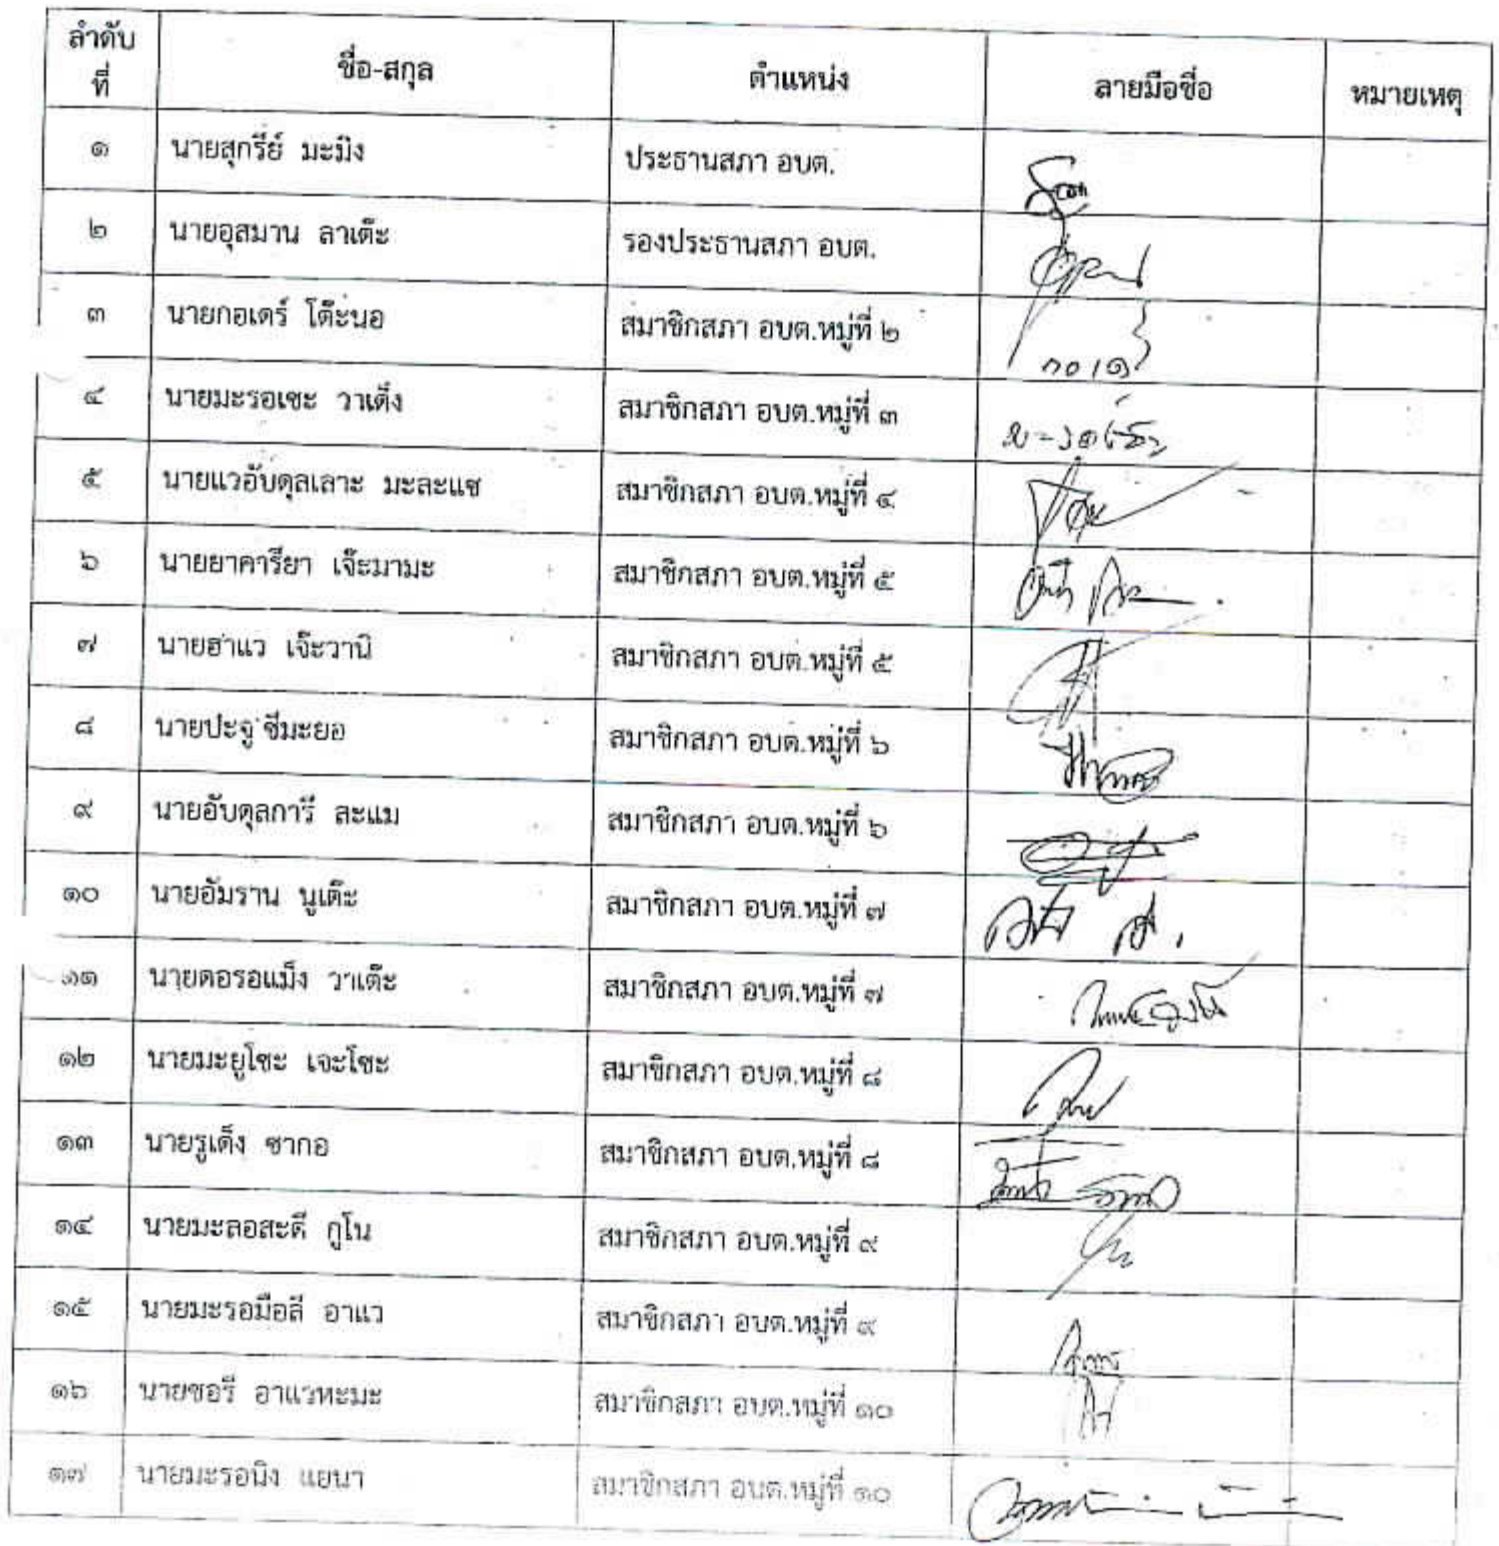 ลำดับที่ ชื่อ-สกุล ตำแหน่ง ลายมือชื่อ หมายเหตุ
๑ นายสุกรีย์ มะมิง ประธานสภา อบต.
๒ นายอุสมาน ลาเต๊ะ รองประธานสภา อบต.
๓ นายกอเดร์ โต๊ะนอ สมาชิกสภา อบต.หมู่ที่ ๒
๔ นายมะรอเซะ วาเด็ง สมาชิกสภา อบต.หมู่ที่ ๓
๕ นายแวอับดุลเลาะ มะละแซ สมาชิกสภา อบต.หมู่ที่ ๔
๖ นายยาคารียา เจ๊ะมามะ สมาชิกสภา อบต.หมู่ที่ ๕
๗ นายฮาแว เจ๊ะวานิ สมาชิกสภา อบต.หมู่ที่ ๕
๘ นายปะจู ซีมะยอ สมาชิกสภา อบต.หมู่ที่ ๖
๙ นายอับดุลการี สะแม สมาชิกสภา อบต.หมู่ที่ ๖
๑๐ นายอัมราน นูเต๊ะ สมาชิกสภา อบต.หมู่ที่ ๗
๑๑ นายดอรอแม็ง วาเต๊ะ สมาชิกสภา อบต.หมู่ที่ ๗
๑๒ นายมะยูโซะ เจะโซะ สมาชิกสภา อบต.หมู่ที่ ๘
๑๓ นายรูเด็ง ซากอ สมาชิกสภา อบต.หมู่ที่ ๘
๑๔ นายมะลอสะดี กูโน สมาชิกสภา อบต.หมู่ที่ ๙
๑๕ นายมะรอมือลี อาแว สมาชิกสภา อบต.หมู่ที่ ๙
๑๖ นายซอรี อาแวหะมะ สมาชิกสภา อบต.หมู่ที่ ๑๐
๑๗ นายมะรอนิง แยนา สมาชิกสภา อบต.หมู่ที่ ๑๐